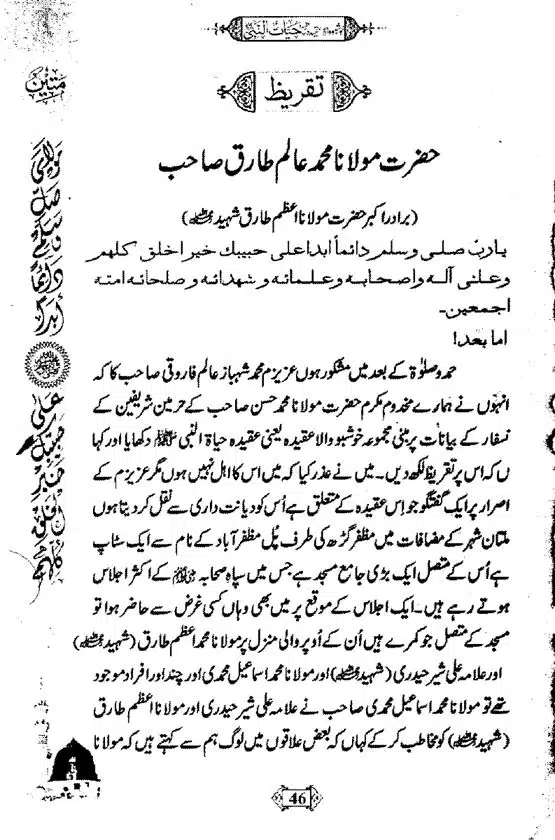 حیات النبی
تقریظ
حضرت مولانا محمد عالم طارق صاحب
(برادر اکبر حضرت مولانا اعظم طارق شہیدؒ)
یارب صلی وسلم دائماً ابدا علی حبیبک خیر اخلق کلهم
وعلی آله واصحابه وعلمائه وشهدائه وصلحائه امته
اجمعین۔
اما بعد!
حمد وصلوٰۃ کے بعد میں مشکور ہوں عزیزم محمد شہباز عالم فاروقی صاحب کا کہ
انہوں نے ہمارے مخدوم مکرم حضرت مولانا محمد حسن صاحب کے حرمین شریفین کے
سفار کے بیانات پر مبنی مجموعہ خوشبو والا عقیدہ یعنی عقیدہ حیاۃ النبی ﷺ دکھایا اور کہا
ں کہ اس پر تقریظ لکھ دیں۔ میں نے عذر کیا کہ میں اس کا اہل نہیں ہوں مگر عزیزم کے
اصرار پر ایک گفتگو جو اس عقیدہ کے متعلق ہے اُس کو دیانت داری سے نقل کر دیتا ہوں
ملتان شہر کے مضافات میں مظفر گڑھ کی طرف پُل مظفر آباد کے نام سے ایک سٹاپ
ہے اُس کے متصل ایک بڑی جامع مسجد ہے جس میں سپاہ صحابہؓ کے اکثر اجلاس
ہوتے رہے ہیں۔ ایک اجلاس کے موقع پر میں بھی وہاں کسی غرض سے حاضر ہوا تو
مسجد کے متصل جو کمرے ہیں اُن کے اُوپر والی منزل پر مولانا محمد اعظم طارق (شہیدؒ)
اور علامہ علی شیر حیدری (شہیدؒ) اور مولانا محمد اسماعیل محمدی اور چند اور افراد موجود
تھے تو مولانا محمد اسماعیل محمدی صاحب نے علامہ علی شیر حیدری اور مولانا اعظم طارق
(شہیدؒ) کو مخاطب کر کے کہا کہ بعض علاقوں میں لوگ ہم سے کہتے ہیں کہ مولانا
46
متین
مولای صل وسلم دائما ابدا
علی حبیبک خیر الخلق کلهم